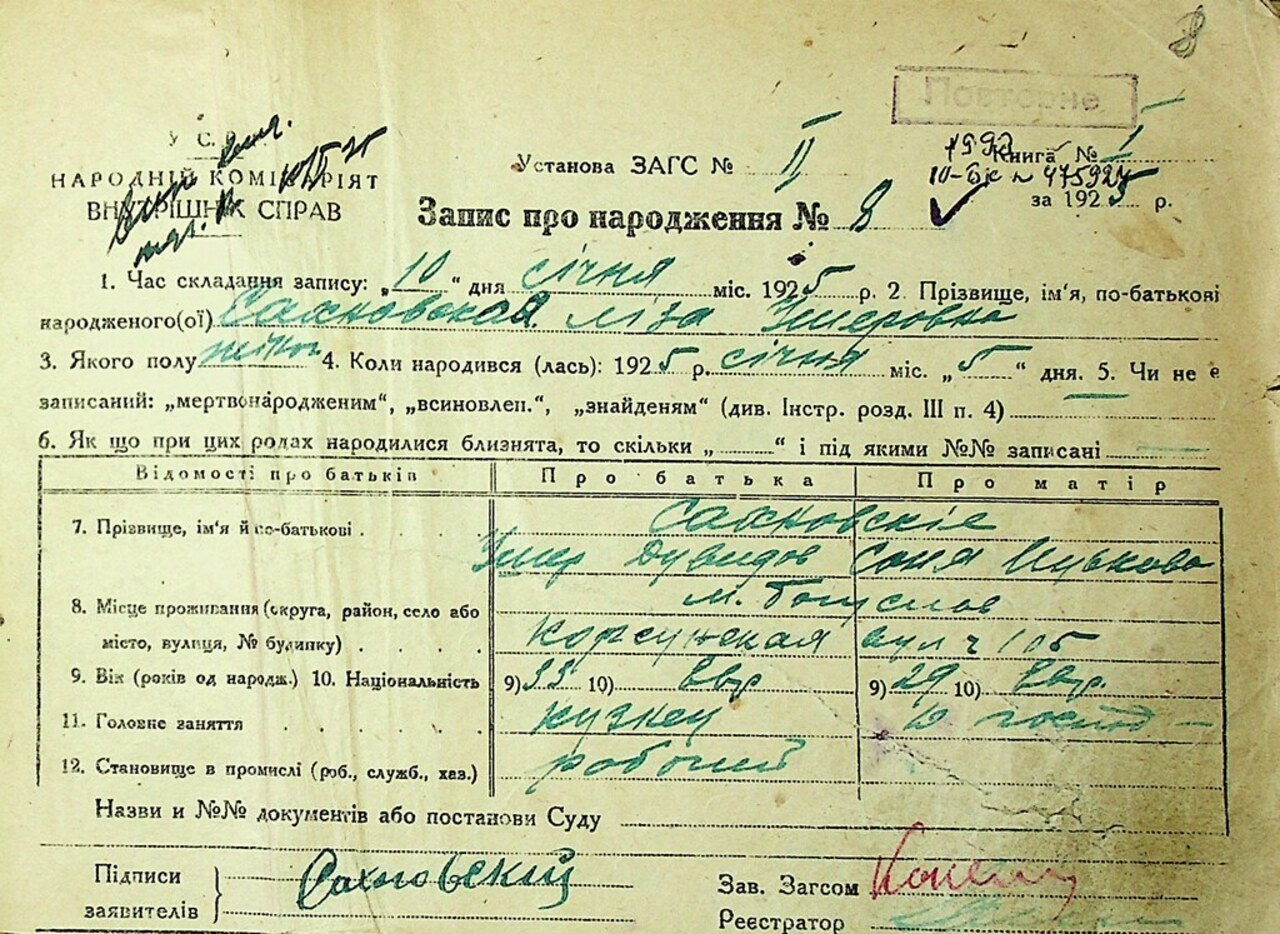 8
Повторне
У. С. Р.
НАРОДНІЙ КОМІСАРІЯТ
ВНУТРІШНІХ СПРАВ
Установа ЗАГС № II
Книга № I
за 1925 р.
Запис про народження № 8
1. Час складання запису: „10“ дня січня міс. 1925 р. 2. Прізвище, ім'я, по-батькові
народженого(ої) Сахновская Ліза Умеровна
3. Якого полу жіноч 4. Коли народився (лась): 1925 р. січня міс. „5“ дня. 5. Чи не є
записаний: „мертвонародженим“, „всиновлен.“, „знайденям“ (див. Інстр. розд. III п. 4) —
6. Як що при цих родах народилися близнята, то скільки „......“ і під якими №№ записані —
Відомості про батьків Про батька Про матір
7. Прізвище, ім'я й по-батькові Сахновскіе
Умер Дувидов Соня
8. Місце проживання (округа, район, село або м. Богуслав
місто, вулиця, № будинку) Корсунская вул ч 105
9. Вік (років од народж.) 10. Національність 9) 33 10) Евр 9) 29 10) Евр.
11. Головне заняття кузнец
12. Становище в промислі (роб., служб., хаз.) робочий
Назви и №№ документів або постанови Суду
Підписи
заявителів
Сахновский
Зав. Загсом
Реєстратор